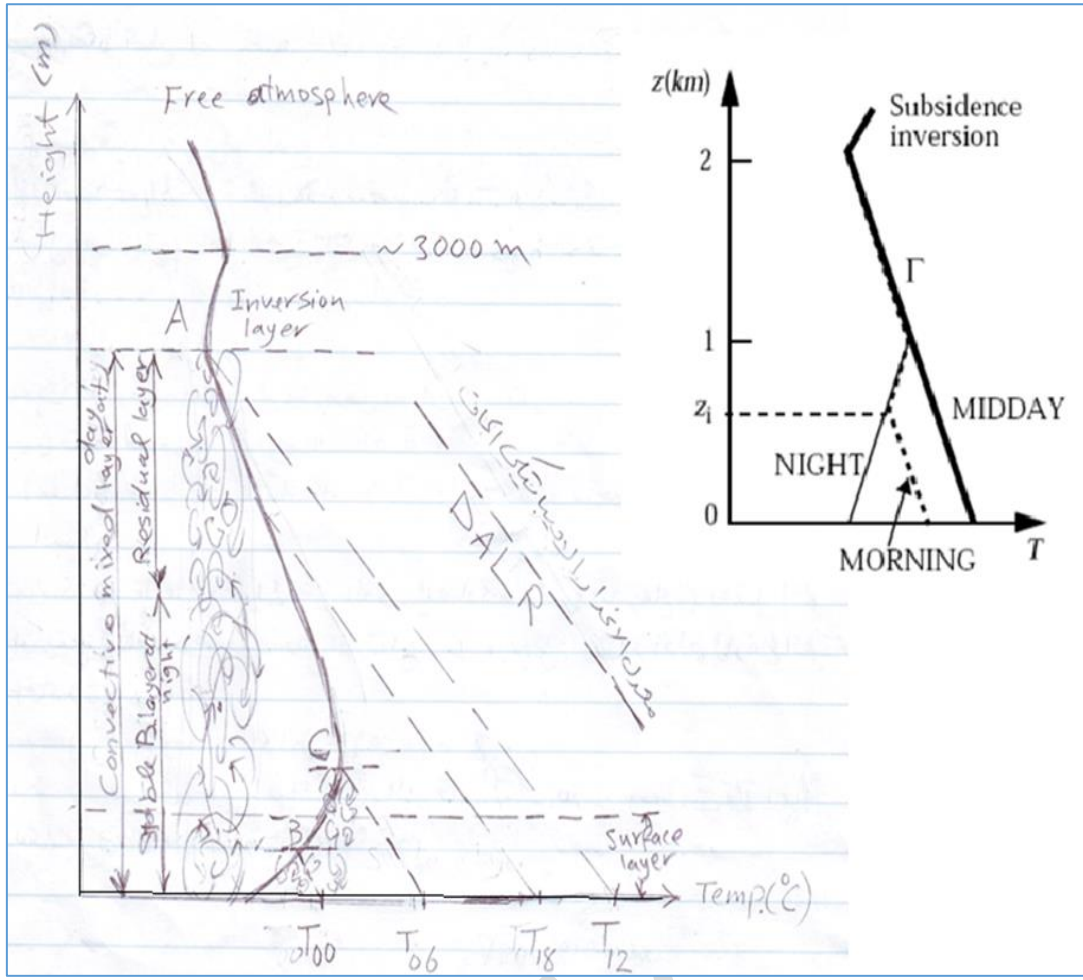 Height (m)
Free atmosphere
~ 3000 m
A
Inversion
layer
Convective mixed layer at
day
Residual layer
Stable B. layer at
night
DALR
C
B
Surface
layer
Temp.(°C)
T00
T06
T18
T12
z(km)
Subsidence
inversion
2
Γ
1
MIDDAY
zi
NIGHT
0
MORNING
T